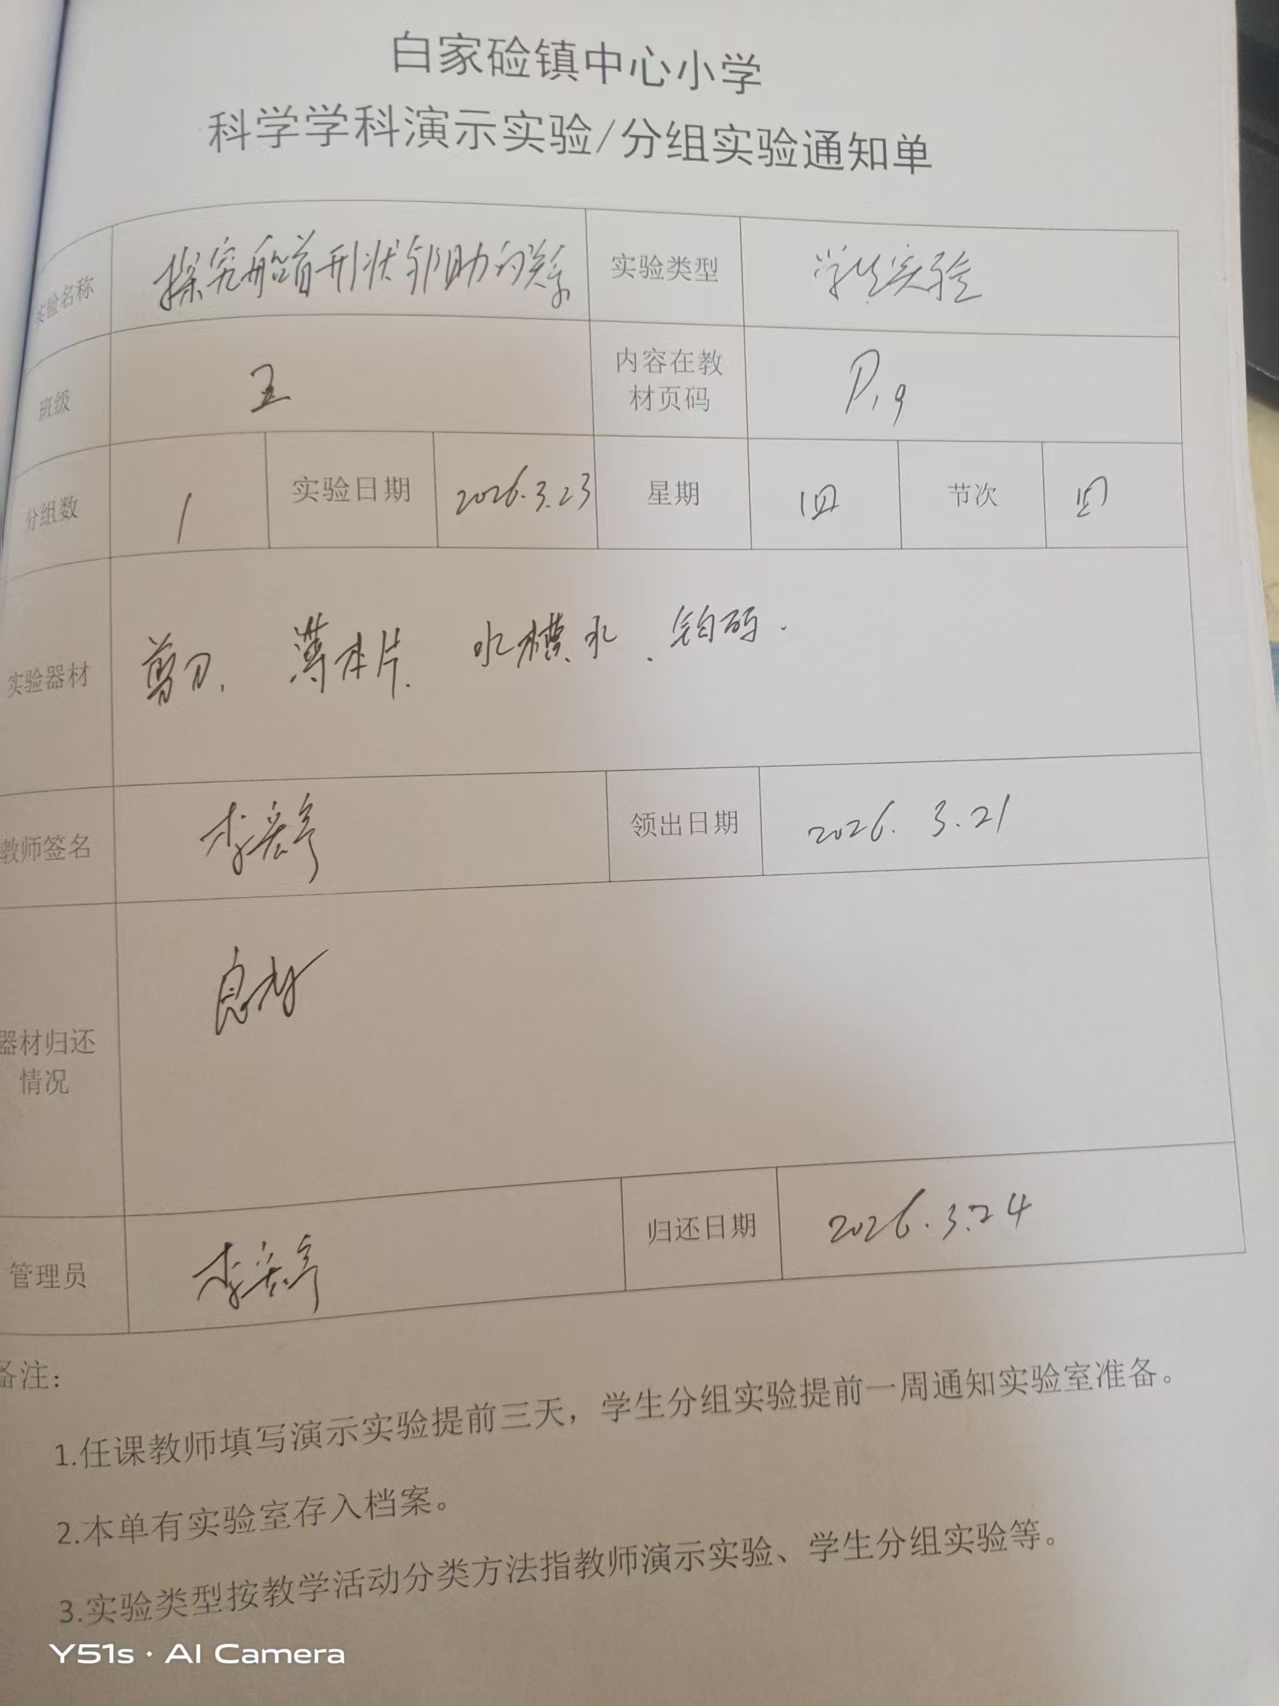 白家硷镇中心小学
科学学科演示实验/分组实验通知单
实验名称 探究船首形状与阻力的关系 实验类型 学生实验
班级 五 内容在教材页码 P19
分组数 1 实验日期 2026.3.23 星期 四 节次 四
实验器材 剪刀、薄木片、水槽、水、钩码.
教师签名 李 领出日期 2026.3.21
器材归还情况 良好
管理员 李 归还日期 2026.3.24
备注:
1.任课教师填写演示实验提前三天，学生分组实验提前一周通知实验室准备。
2.本单有实验室存入档案。
3.实验类型按教学活动分类方法指教师演示实验、学生分组实验等。
Y51s · AI Camera